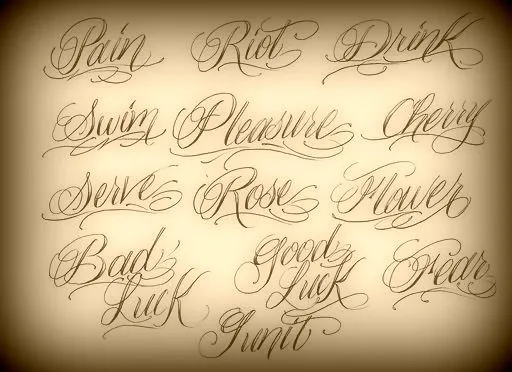 Pain Riot Drink
Swim Pleasure Cherry
Serve Rose Flower
Bad Good Fear
Luck Luck
Gunit